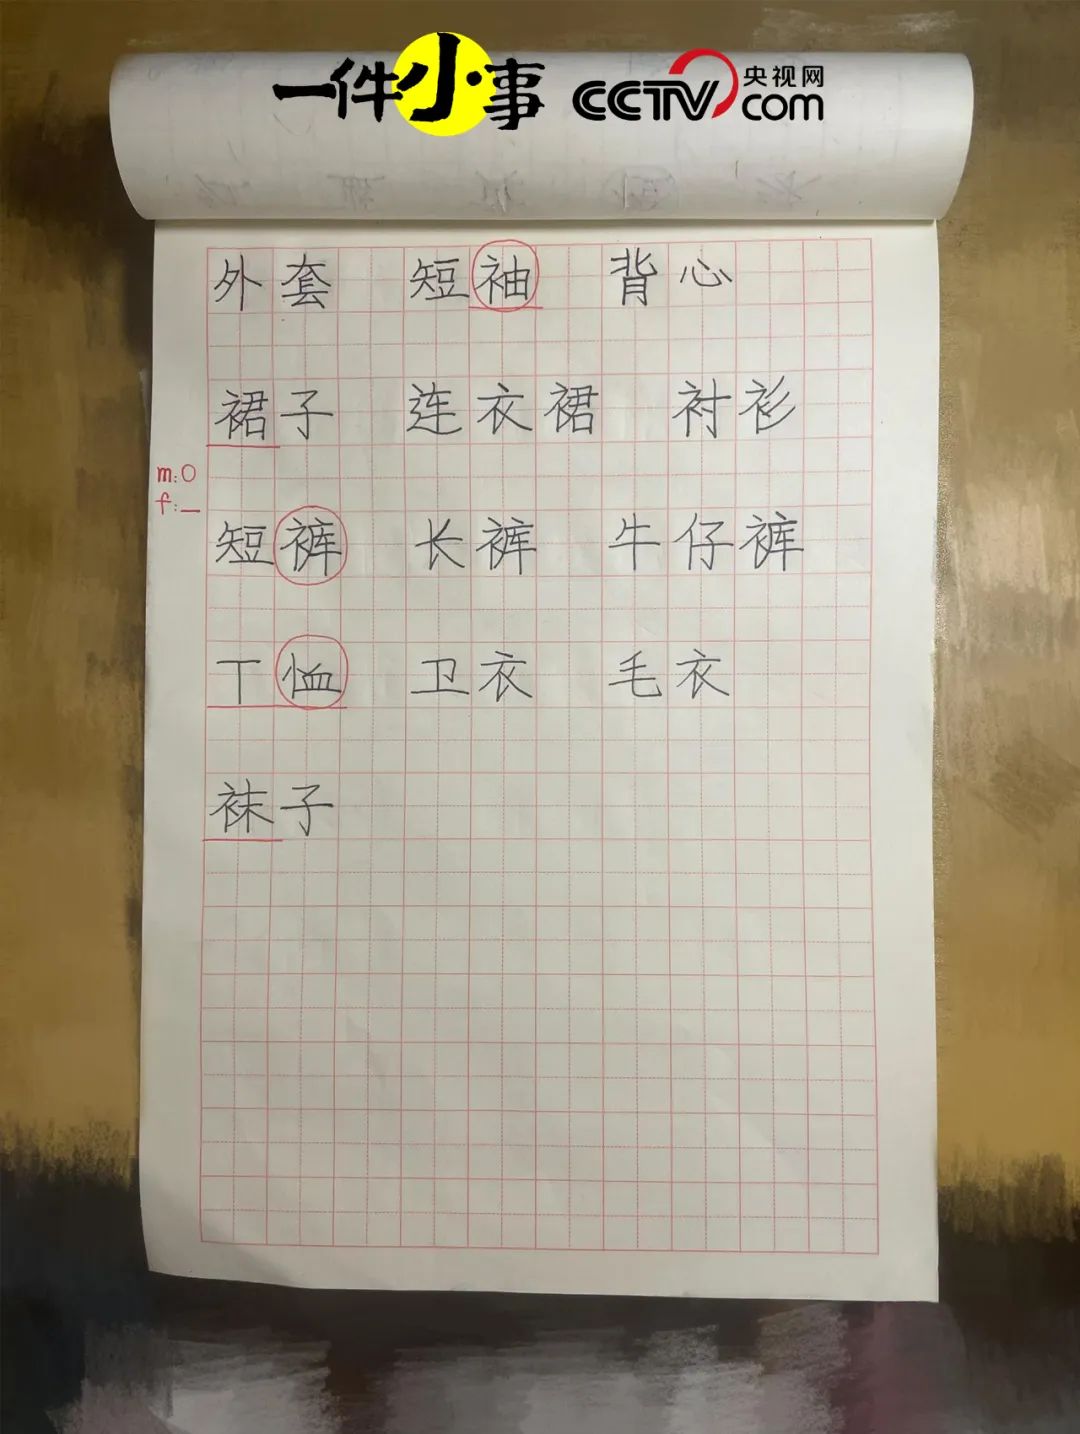 一件小事 CCTV.com 央视网
外套 短袖 背心
裙子 连衣裙 衬衫
m:O
f:_
短裤 长裤 牛仔裤
T恤 卫衣 毛衣
袜子